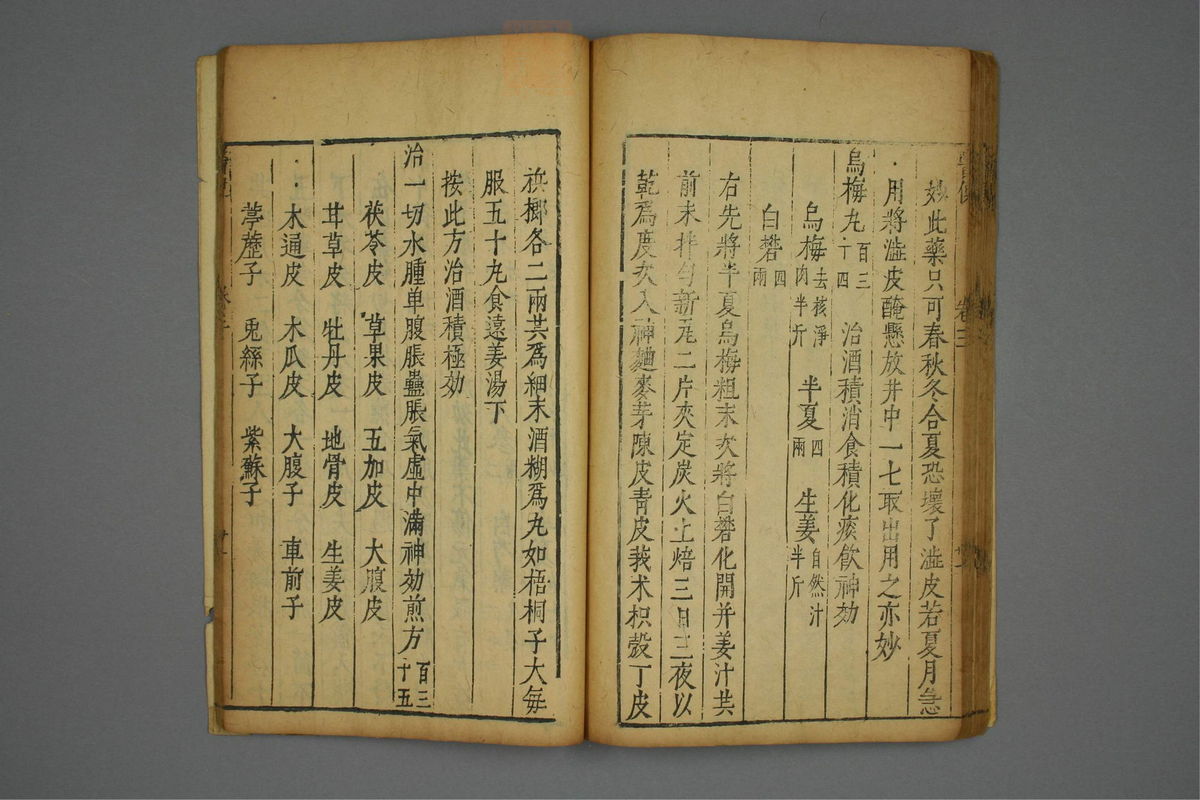 妙此藥只可春秋冬合夏恐壞了澁皮若夏月急
用將澁皮醃懸放井中一七取出用之亦妙
烏梅丸百三十四 治酒積消食積化痰飲神効
烏梅去核淨肉半斤 半夏四兩 生姜自然汁半斤
白礬四兩
右先將半夏烏梅粗末次將白礬化開并姜汁共
前末拌勻新瓦二片夾定炭火上焙三日三夜以
乾爲度次入神麯麥芽陳皮青皮莪术枳殼丁皮
卷三
檳榔各二兩共爲細末酒糊爲丸如梧桐子大每
服五十九食遠姜湯下
按此方治酒積極効
治一切水腫单腹脹蠱脹氣虛中滿神効煎方百三十五
茯苓皮 草果皮 五加皮 大腹皮
甘草皮 牡丹皮 地骨皮 生姜皮
木通皮 木瓜皮 大腹子 車前子
葶藶子 兎絲子 紫蘇子